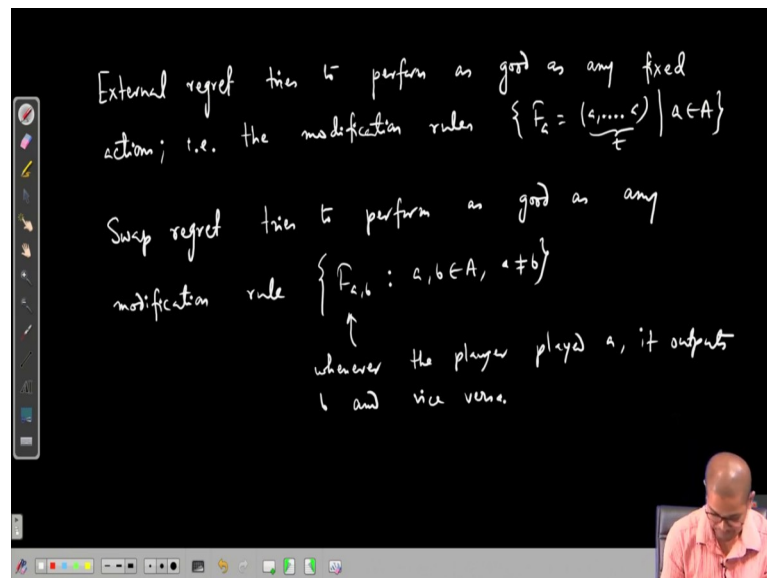 External regret tries to perform as good as any fixed
action; i.e. the modification rules { F_a = (a,.... a) | a ∈ A }
t
Swap regret tries to perform as good as any
modification rule { F_{a,b} : a, b ∈ A, a ≠ b }
↑
whenever the player played a, it outputs
b and vice versa.